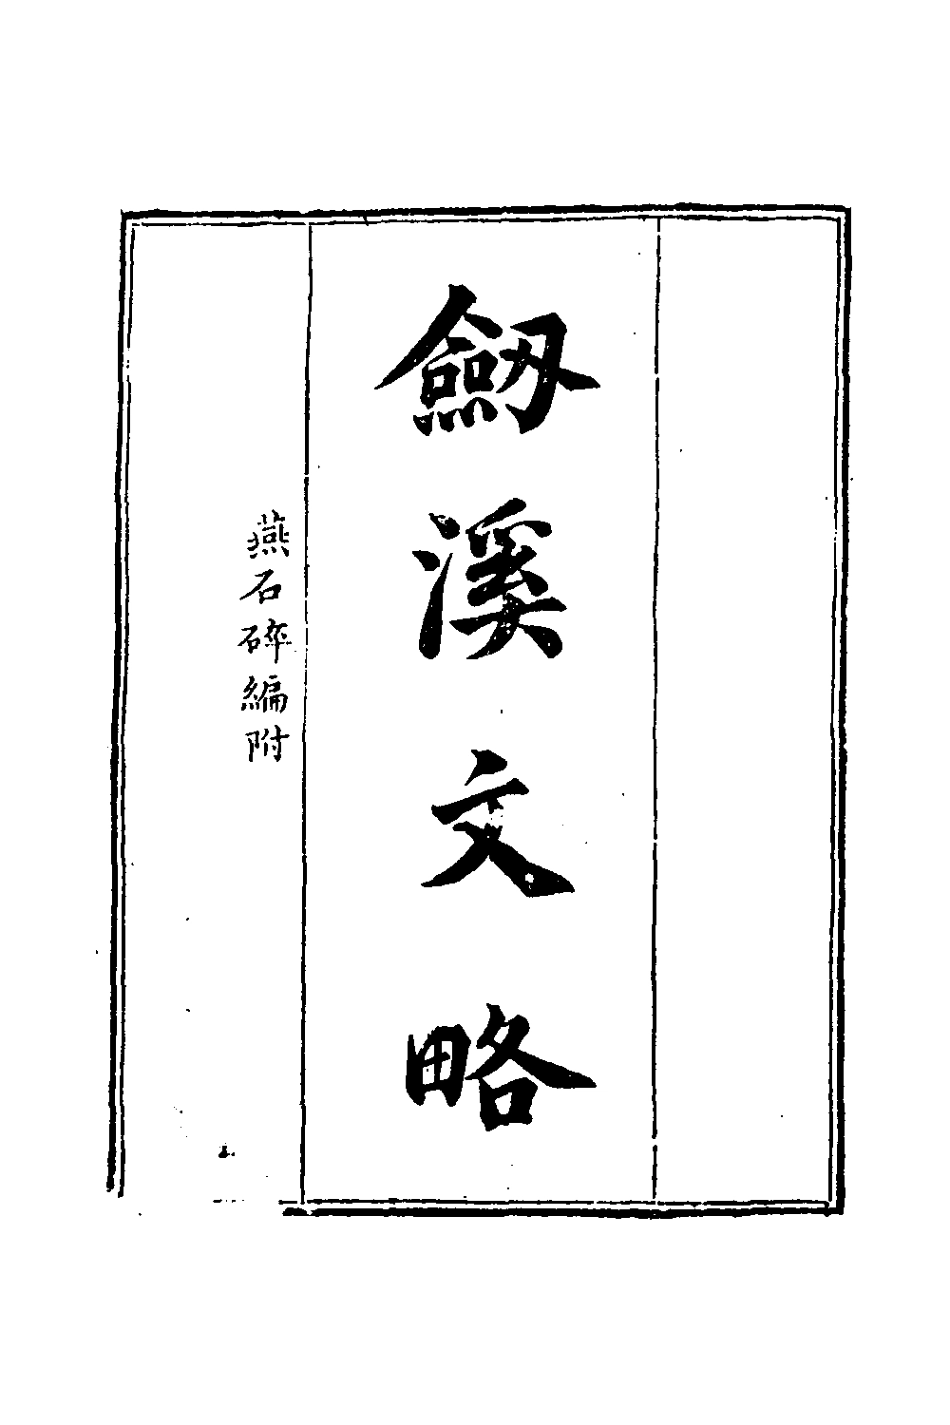 劔溪文略
燕石碎編附